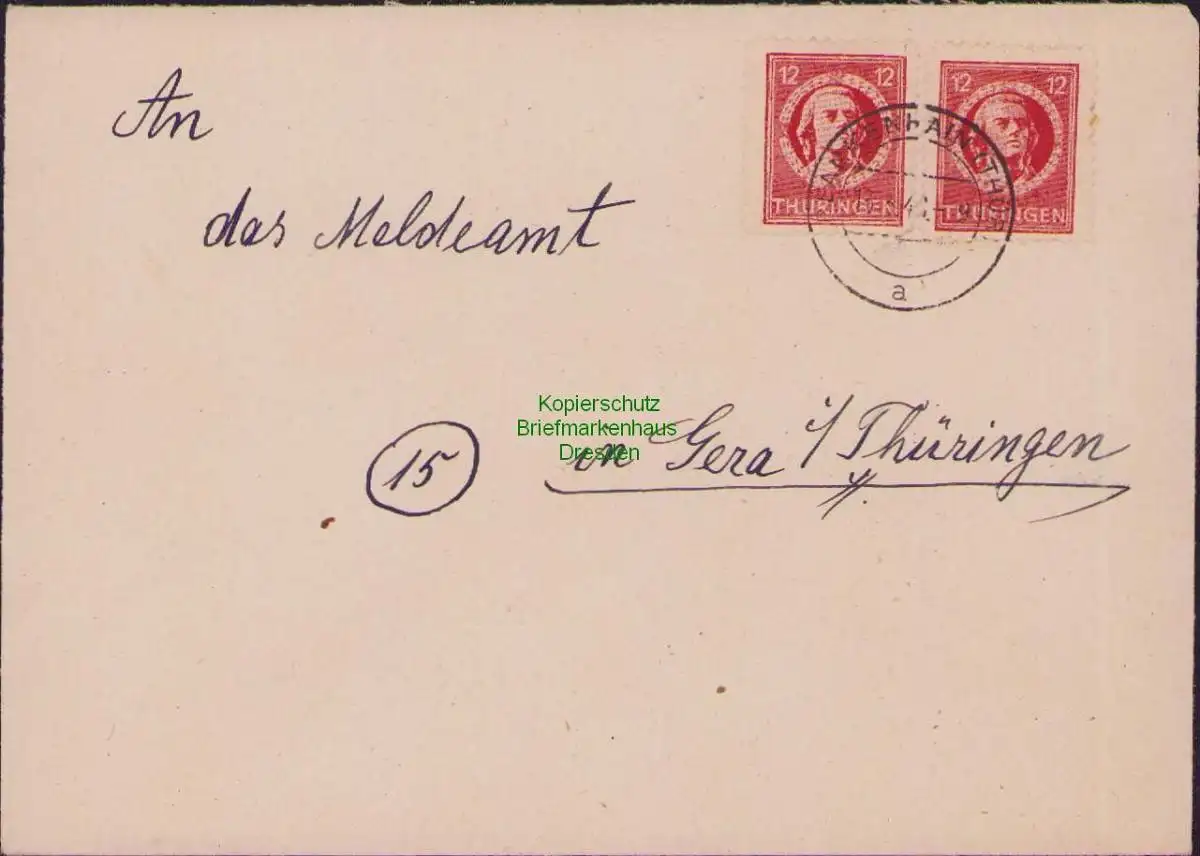 12 12
THÜRINGEN
12 12
THÜRINGEN
a
An
das Meldeamt
Kopierschutz
Briefmarkenhaus
Dresden
15
in Gera i/Thüringen